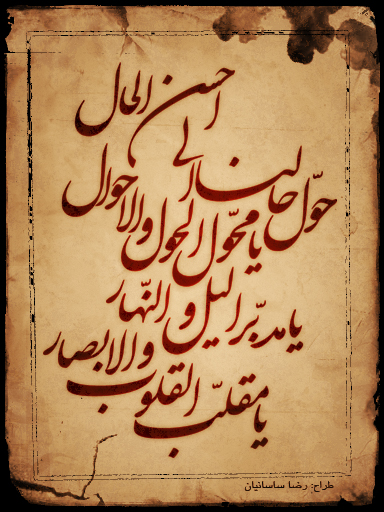 یا مقلّب القلوب والابصار
یا مدبّر الیل و النّهار
یا محوّل الحول والاحوال
حوّل حالنا الی
احسن الحال
طراح: رضا ساسانیان